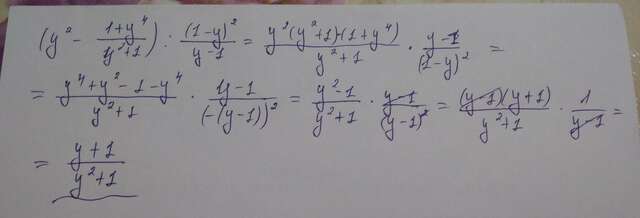 (y² - (1+y⁴)/(y²+1)) : (1-y)²/(y-1) = (y²(y²+1)-(1+y⁴))/(y²+1) · (y-1)/(1-y)² =
= (y⁴+y²-1-y⁴)/(y²+1) · (y-1)/(-(y-1))² = (y²-1)/(y²+1) · (y-1)/(y-1)² = ((y-1)(y+1))/(y²+1) · 1/(y-1) =
= (y+1)/(y²+1)